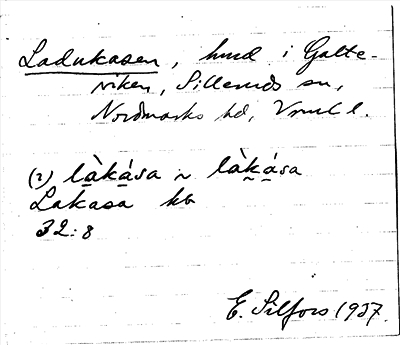 Ladukasen, hmd i Galte-
viken, Silleruds sn,
Nordmarks hd, Vrml l.
(2) làkása ~ làkása
Lakasa hb
32:8
E. Silfors 1937.